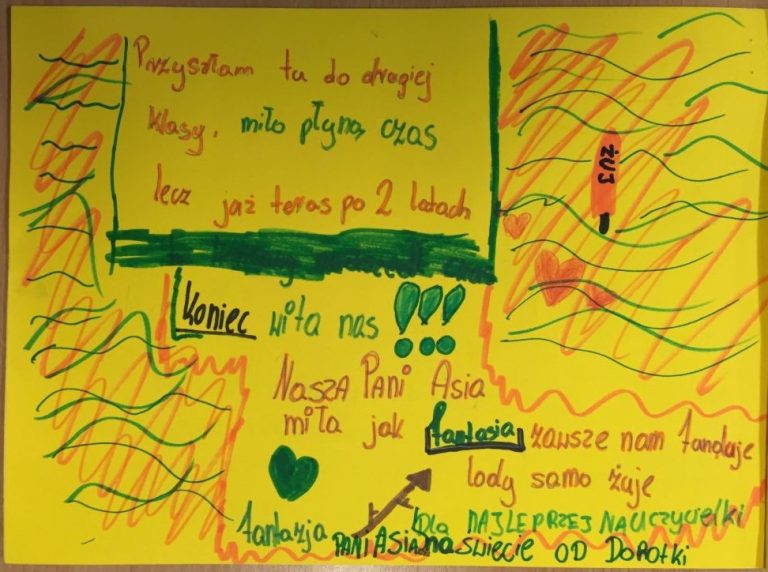 Przyszłam tu do drogiej
klasy, miło płyną czas
lecz jaż teras po 2 latach
Koniec wita nas !!!
Nasza Pani Asia
miła jak fantasia zawsze nam fanduje
lody samo żuje
fantazja
dla NAJLEPRZEJ NAUCZYCIELKI
PANI Asia na świecie OD DOROTKI
ŻUJ